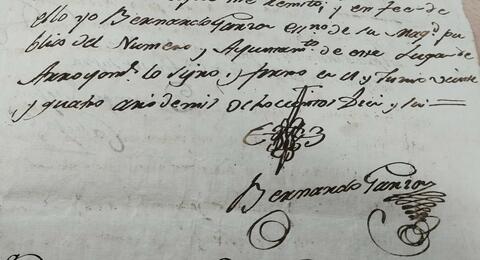 me remito; y en fee de
ello yo Bernardo Ganzo ess.no de su Mag.d pu
blico del Numero, y Ayuntam.to de este Lugar de
lo signo, y firmo en el y Junio veinte
y quatro año de mil ochocientos Diez y seis
Bernardo Ganzo